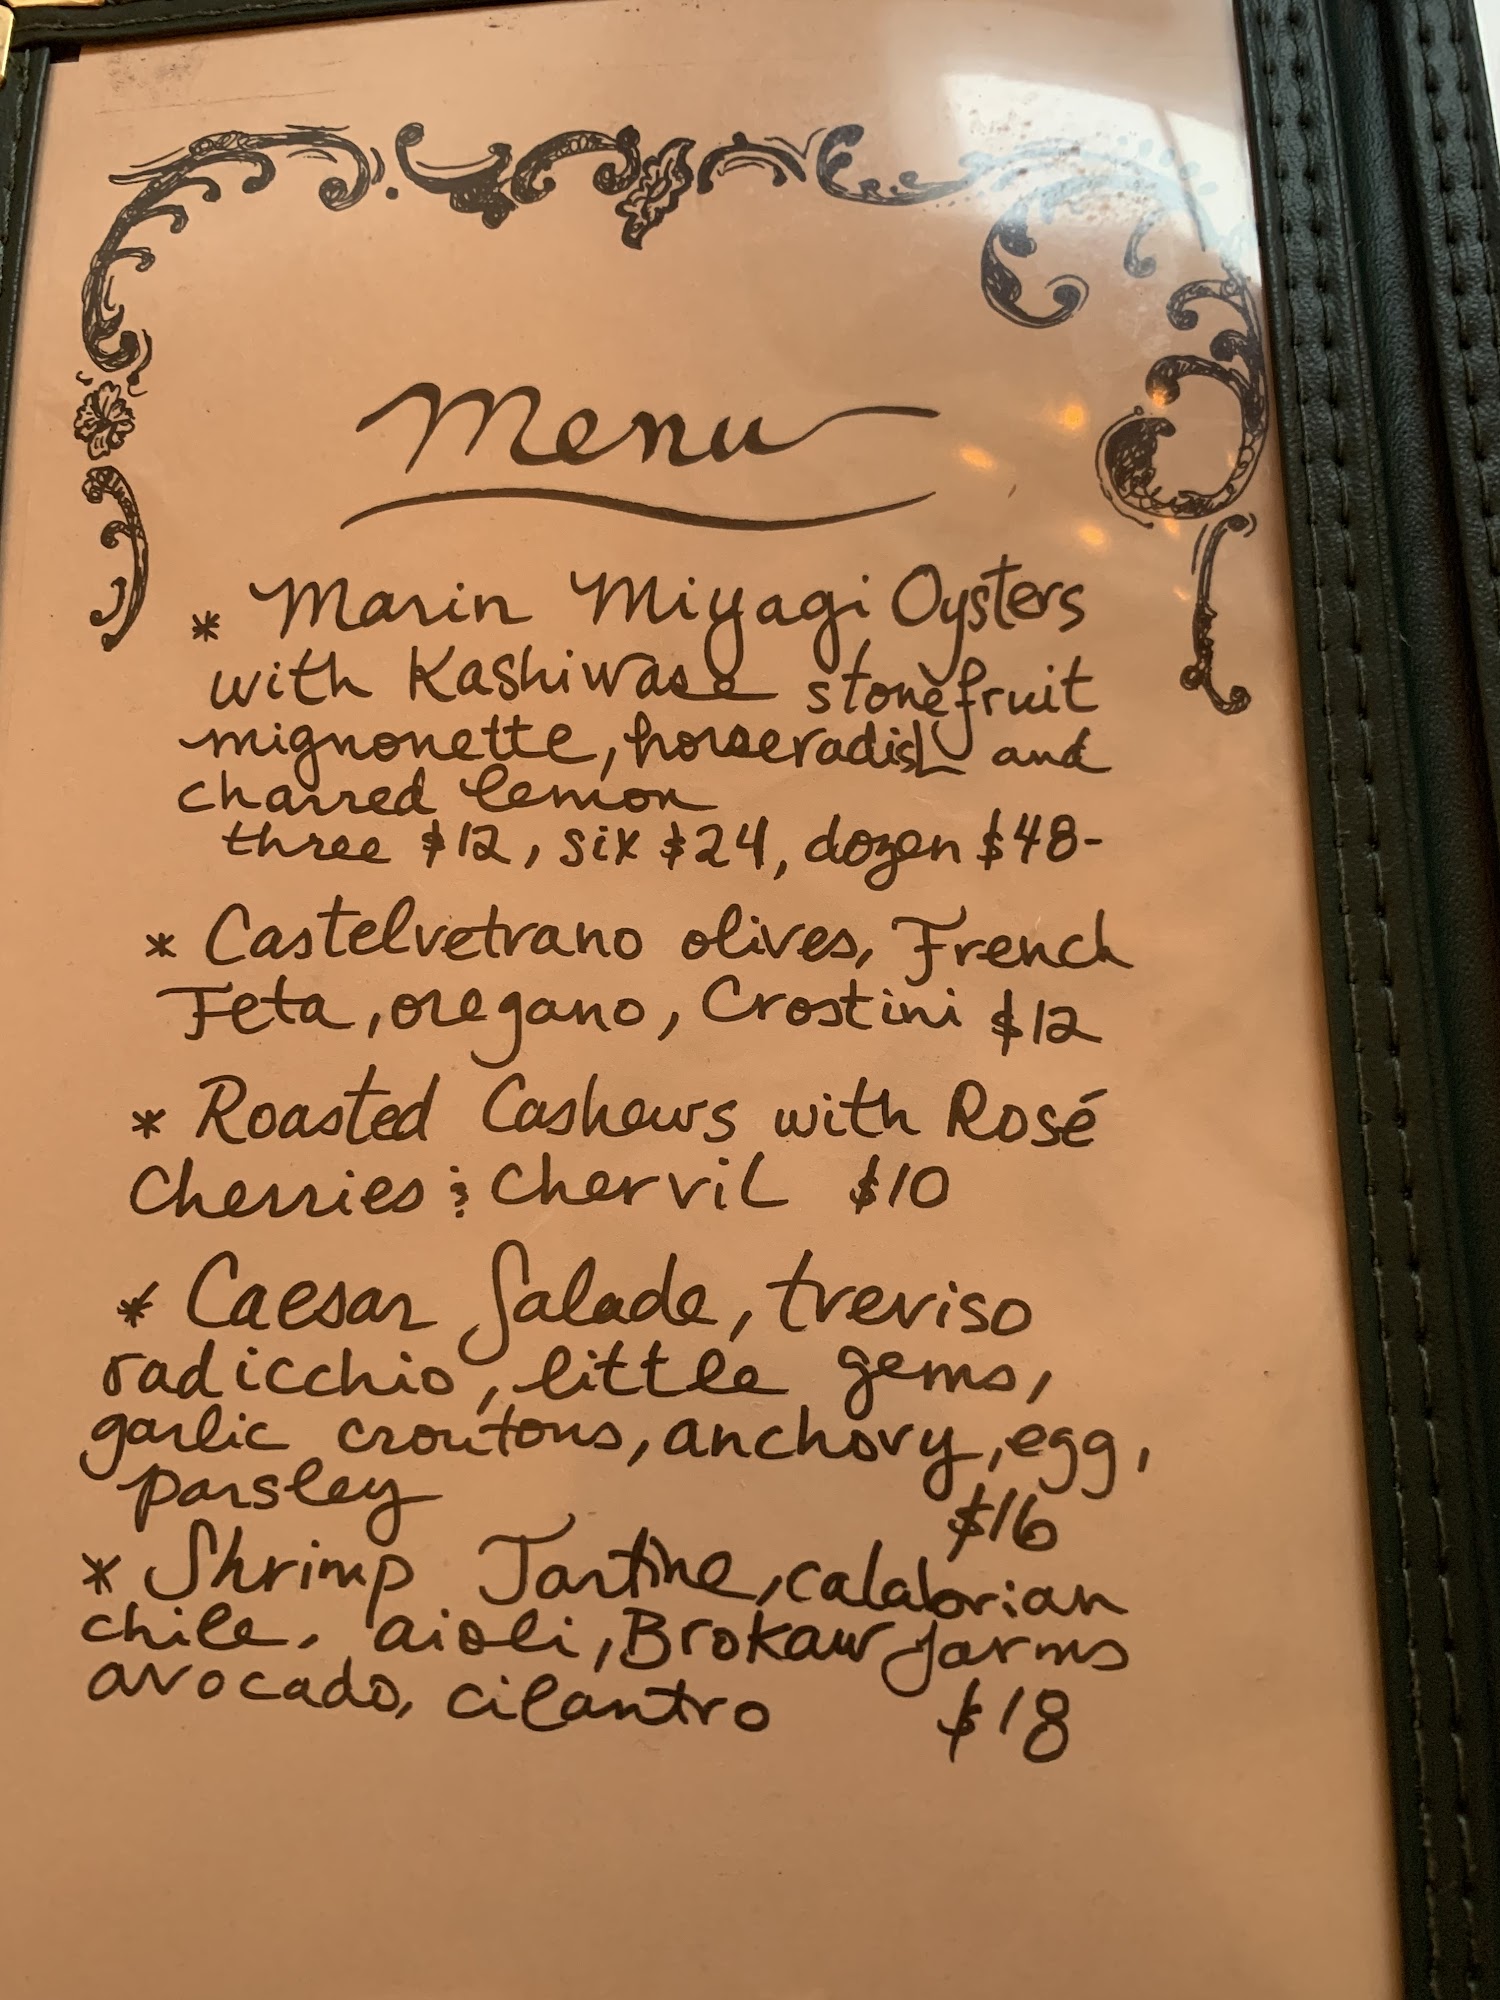 Menu
* Marin Miyagi Oysters
with Kashiwase stonefruit
mignonette, horseradish and
charred lemon
three $12, six $24, dozen $48-
* Castelvetrano olives, French
Feta, oregano, Crostini $12
* Roasted Cashews with Rosé
Cherries & Chervil $10
* Caesar Salade, treviso
radicchio, little gems,
garlic croutons, anchovy, egg,
parsley
$16
* Shrimp Tartine, calabrian
chile, aioli, Brokaw farms
avocado, cilantro $18